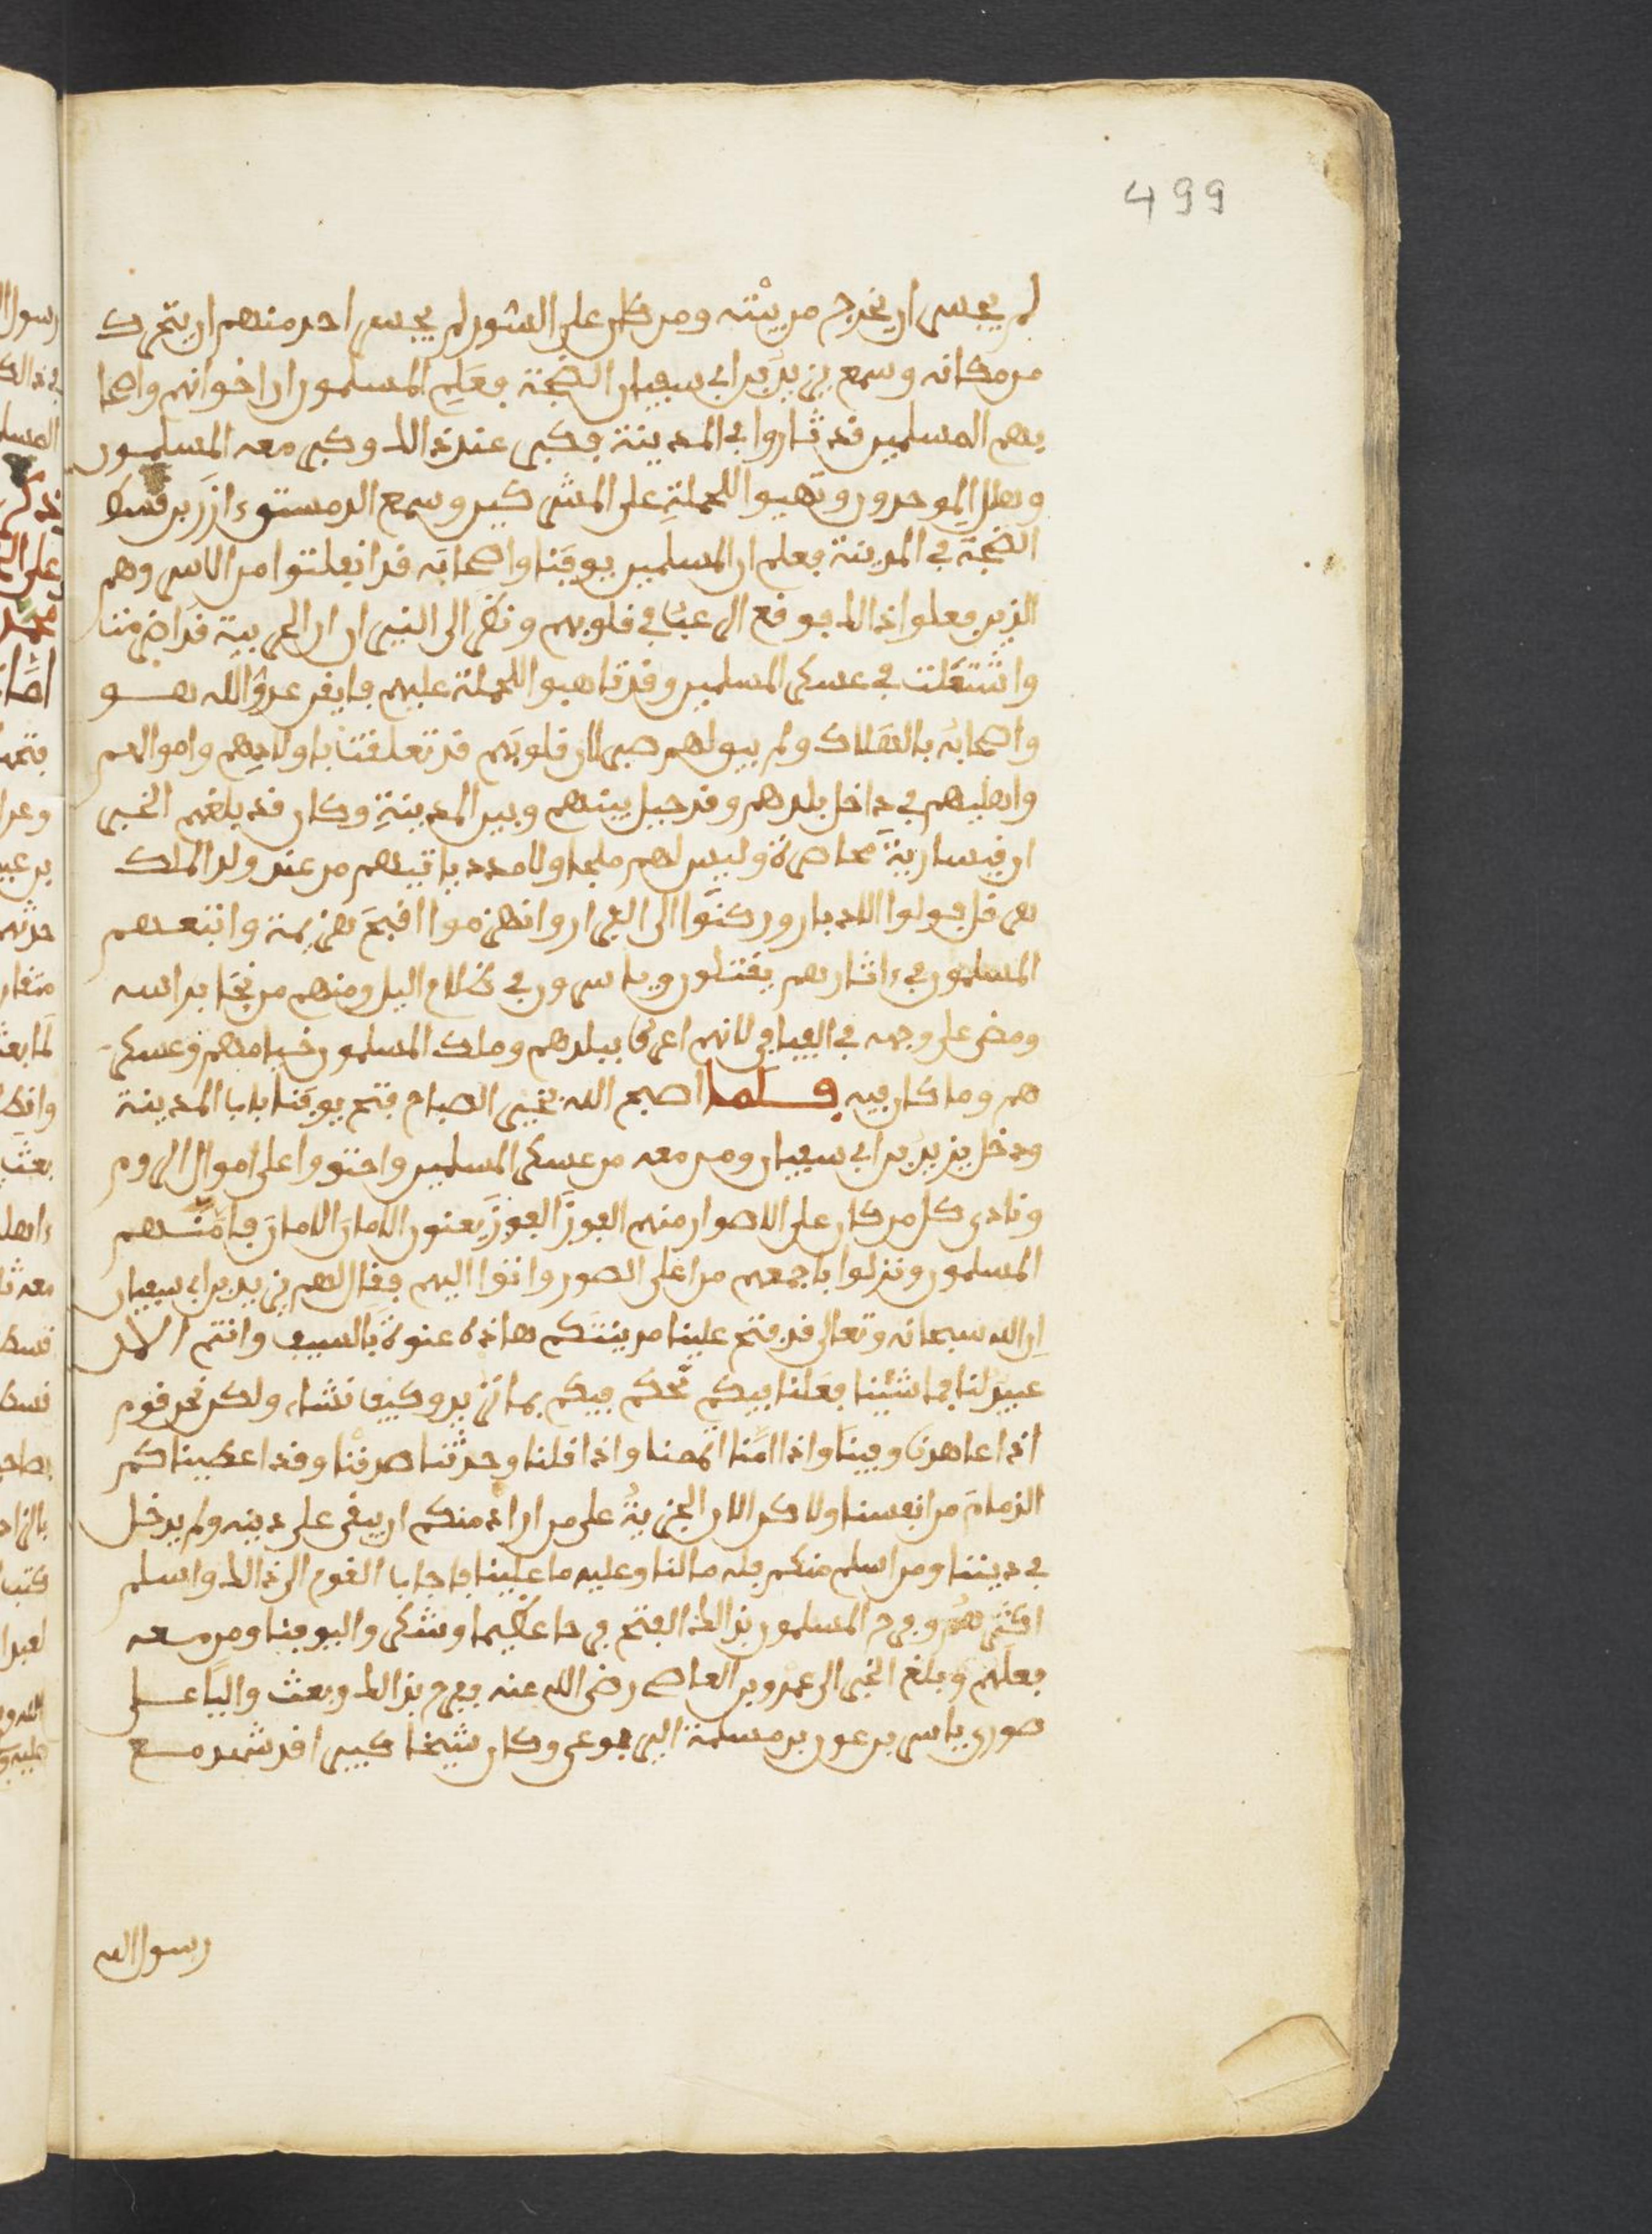 499
لم يجسر ان يخرج من بيته ومن كان على السور لم يجسر احد منهم ان يتحرك
من مكانه وسمع يزيد بن ابي سفيان الضجة فعلم المسلمون ان اخوانهم واصحا
بهم المسلمين قد ثاروا في المدينة فكبر عند ذالك وكبر معه المسلمون
وهلل الموحدون وتهيوا للحملة على المشركين وسمع الدمستق
الضجة في المدينة فعلم ان المسلمين يوقنا واصحابه قد انفلتوا من الاسر وهم
الذين فعلوا ذالك فوقع الرعب في قلوبهم ونظر الى النيران
واشتعلت في عسكر المسلمين وقد تاهبوا للحملة عليهم فايقن عدو الله هو
واصحابه بالهلاك ولم يبق لهم صبر لان قلوبهم قد تعلقت باولادهم واموالهم
واهليهم في داخل بلدهم وقد حيل بينهم وبين المدينة وكان قد بلغهم الخبر
ان قيسارية محاصرة وليس لهم ملجا ولا مدد ياتيهم من عند ولد الملك
هرقل فولوا الادبار وركنوا الى الفرار وانهزموا اقبح هزيمة واتبعهم
المسلمون في ءاثارهم يقتلون وياسرون في ظلام اليل ومنهم من نجا براسه
ومضى على وجهه في الفيافي لانهم اعرف ببلدهم وملك المسلمون خيامهم وعسكر
هم وما كان فيه فلما اصبح الله بخير الصباح فتح يوقنا باب المدينة
ودخل يزيد بن ابي سفيان ومن معه من عسكر المسلمين واحتووا على اموال الروم
ونادى كل من كان على الاصوار منهم الفوز الفوز يعنون الامان الامان فامنهم
المسلمون ونزلوا باجمعهم من اعلى الصور واتوا اليهم فقال لهم يزيد بن ابي سفيان
ان الله سبحانه وتعالى قد فتح علينا مدينتكم هاذه عنوة بالسيف وانتم الان
عبيد لنا فما شئنا فعلنا فيكم نحكم فيكم بما نريد وكيف نشاء ولكن نحن قوم
اذا عاهدنا وفينا واذا امنا اتممنا واذا قلنا وحدثنا صدقنا وقد اعطيناكم
الزمام من انفسنا ولاكن الان الجزية على من اراد منكم ان يبقى على دينه ولم يدخل
في ديننا ومن اسلم منكم فله ما لنا وعليه ما علينا فاجاب القوم الى ذالك واسلم
اكثرهم وفرح المسلمون بذالك الفتح فرحا عظيما وشكروا ليوقنا ومن معه
فعلهم وبلغ الخبر الى عمرو بن العاص رضى الله عنه ففرح بذالك وبعث واليا على
صور ياسر بن عون بن مسلمة وكان شيخا كبيرا قد شهد مع
رسول الله